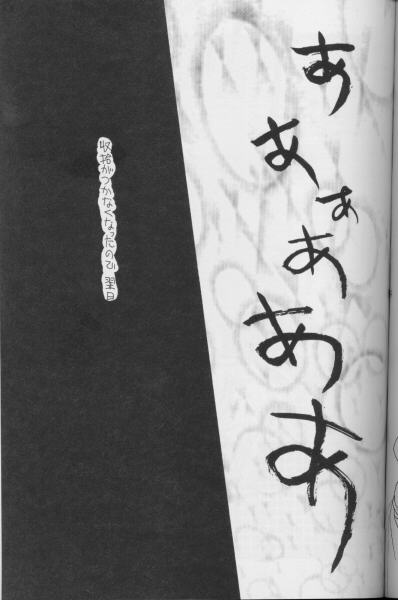 ああぁあああ
収拾がつかなくなったので 翌日